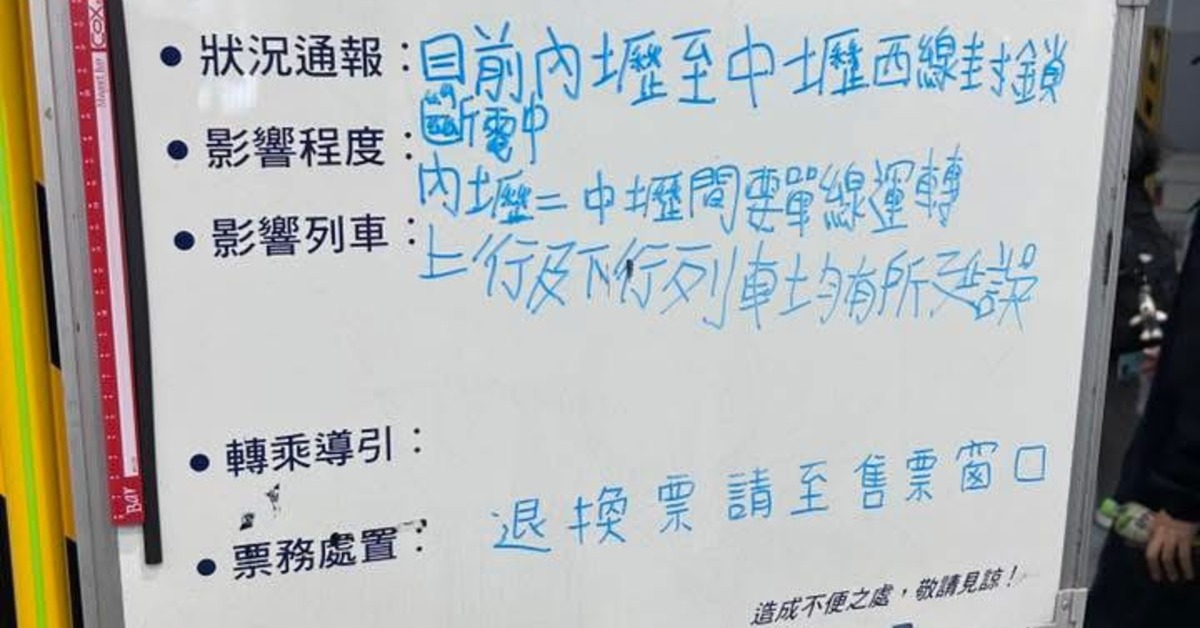 狀況通報：目前內壢至中壢西線封鎖
斷電中
影響程度：內壢=中壢間要單線運轉
影響列車：上行及下行列車均有所延誤
轉乘導引：
票務處置：退換票請至售票窗口
造成不便之處，敬請見諒！
Bar